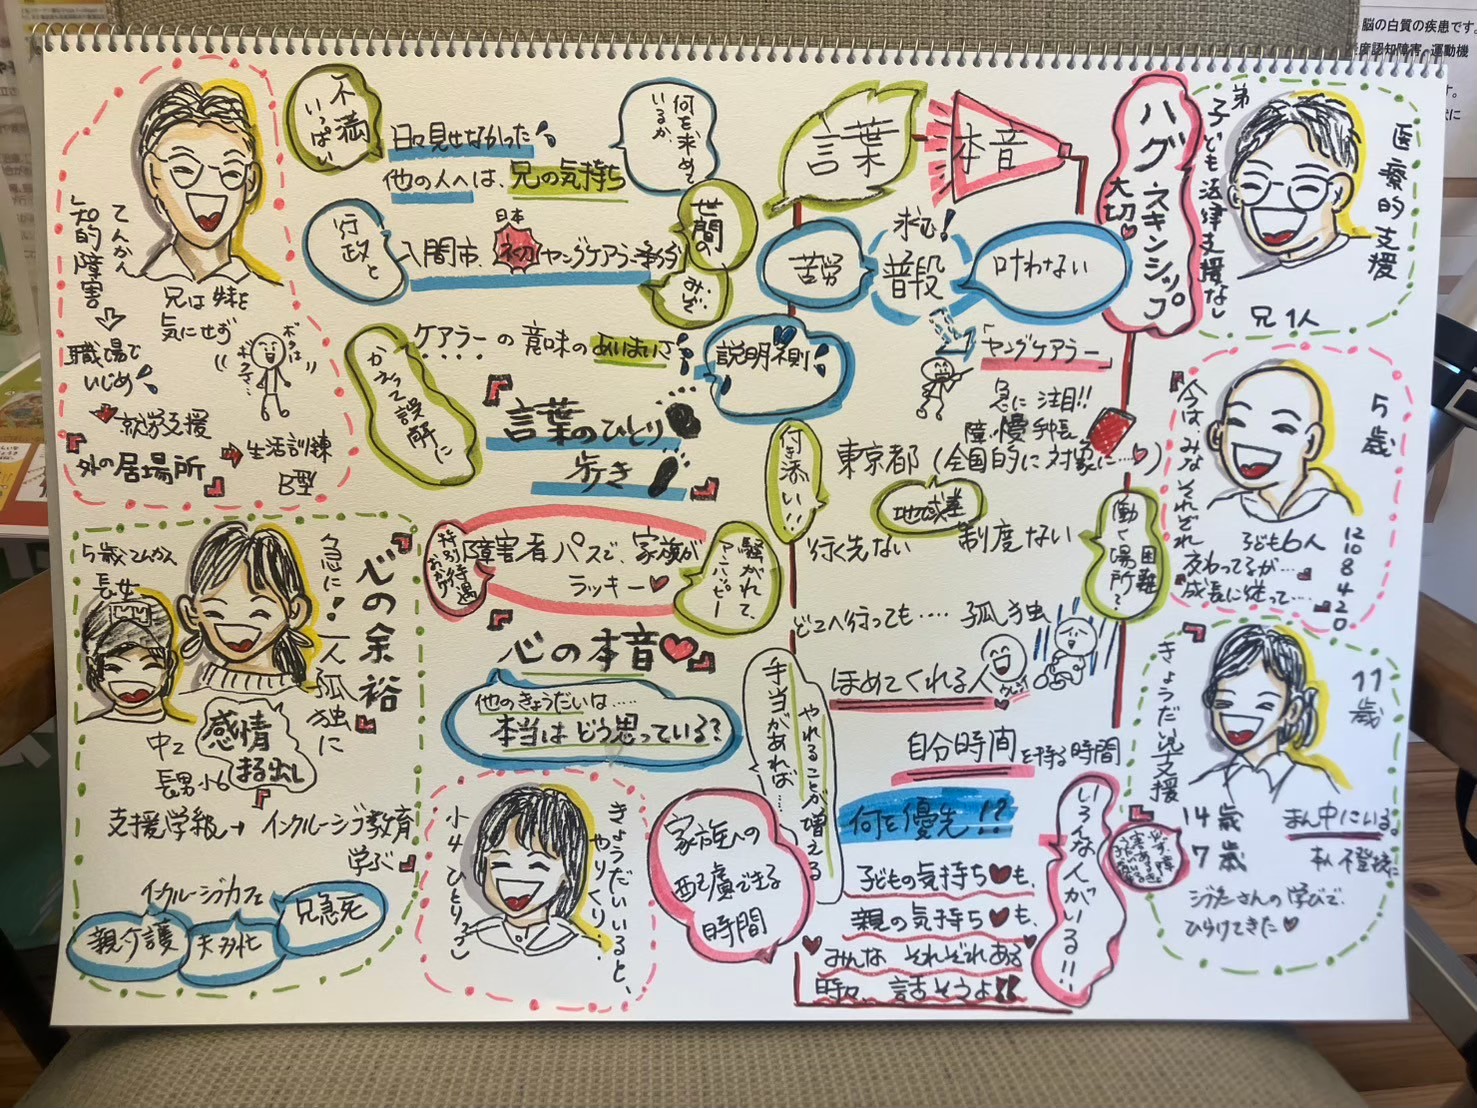 脳の白質の疾患です。
てんかん
知的障害
兄は妹を
気にせず
職場で
いじめ
就労支援
生活訓練
B型
外の居場所
ボクは
不満
いっぱい
日々見せなかった
他の人へは、兄の気持ち
何を求めて
いるか
行政と
入間市、日本初ヤングケアラー条例
世間の
みぞ
ケアラーの意味のあいまいさ
説明不則
かえって誤解に
言葉のひとり
歩き
言葉
本音
求む!
苦労
普段
叶わない
ハグ
スキンシップ
大切
弟
子ども法律支援なし
医療的支援
兄1人
ヤングケアラー
急に注目!!
付き添い!!
東京都(全国的に対象に…)
地域差
行く先ない
制度ない
働く場所?
困難
どこへ行っても……孤独
ほめてくれる人
自分時間を持る時間
何を優先!?
子どもの気持ち♥も、
親の気持ち♥も、
みんなそれぞれある
時々、話そうよ!!
いろんな人がいる!!
5歳
今はみなそれぞれ
子ども6人
12
10
8
4
2
0
変わってるが…
成長に従って…
11歳
きょうだい児支援
14歳
7歳
まん中にいる。
本人不登校に
ジブンさんの学びで、
ひらけてきた♥
特別待遇
おかげ
障害者パスで、家族が
ラッキー♥
騒がれて、
アンハッピー
心の本音♥
他のきょうだいは……
本当はどう思っている?
手当があれば…
やれることが増える
家族への
配慮できる
時間
小4 ひとりっ子
きょうだいいると、
やりくり…
5歳てんかん
長女
急に!一人孤独に
心の余裕
感情
まる出し
中2
長男小6
支援学級→インクルーシブ教育
学ぶ
インクルーシブカフェ
親介護
夫多忙
兄急死